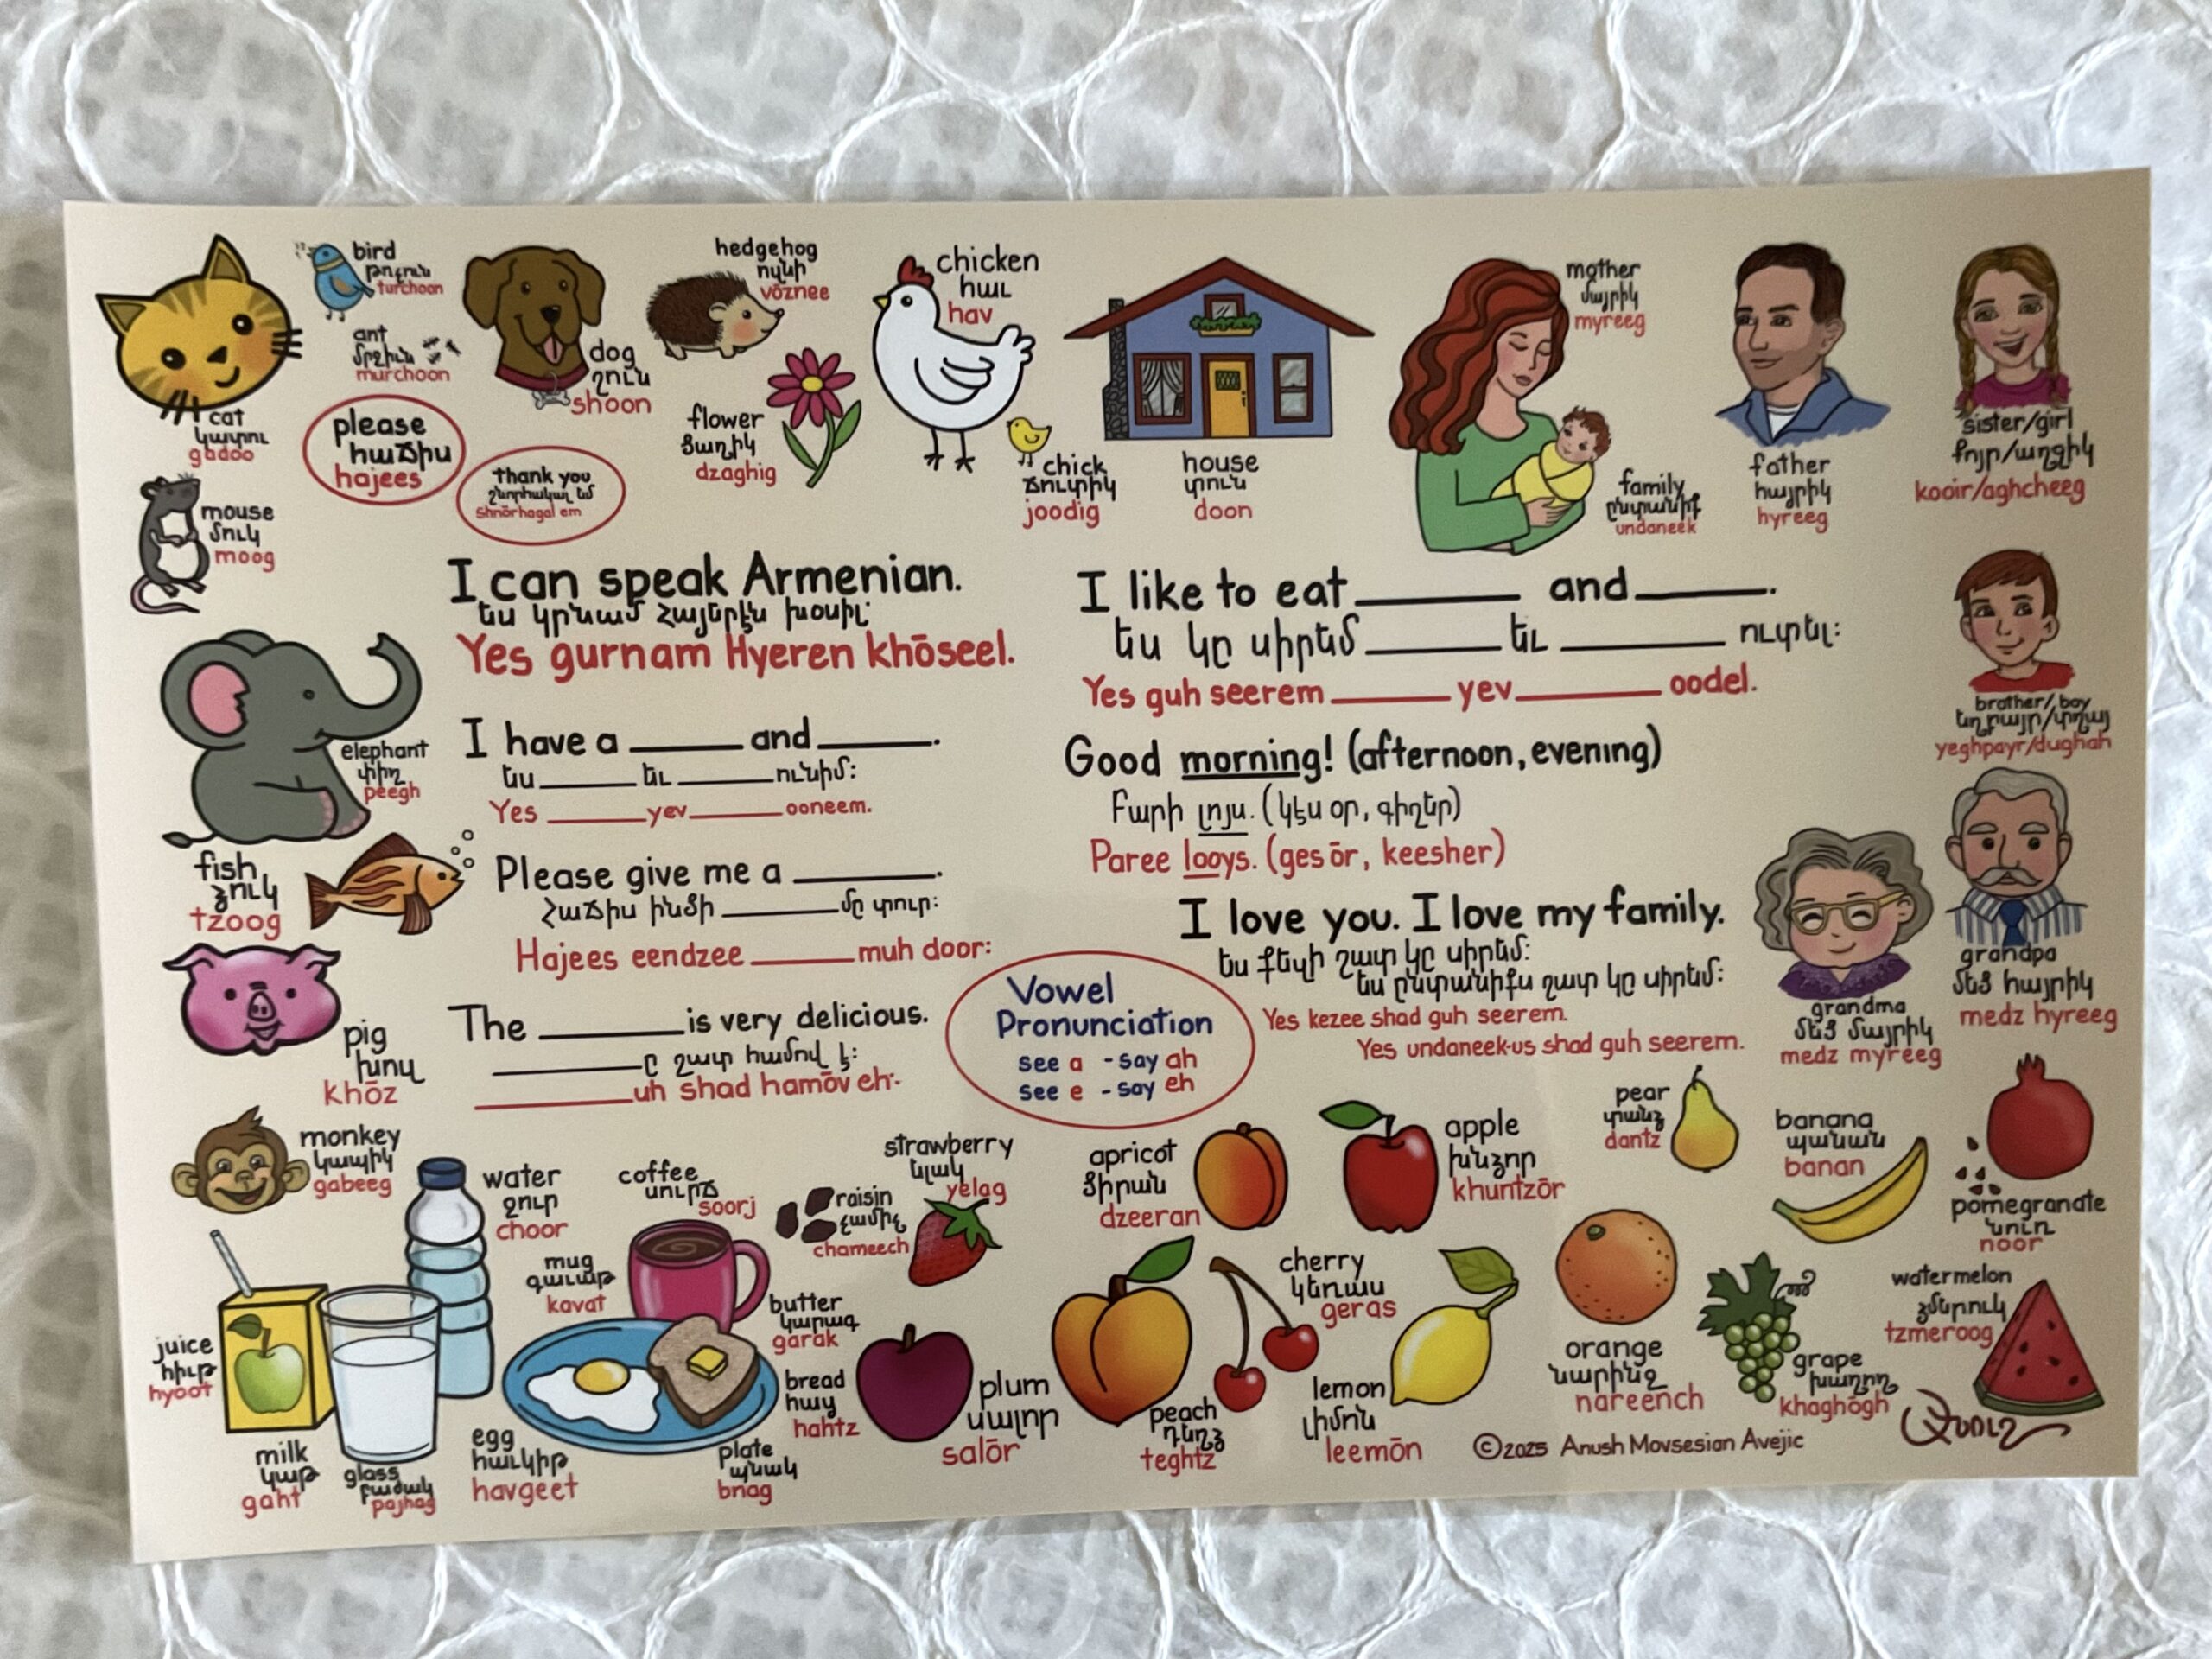 bird
թռչուն
turchoon
ant
մրջիւն
murchoon
cat
կատու
gadoo
please
հաճիս
hajees
Thank you
շնորհակալ եմ
Shnōrhagal em
dog
շուն
shoon
hedgehog
ոզնի
vōznee
flower
ծաղիկ
dzaghig
chicken
հաւ
hav
chick
ճուտիկ
joodig
house
տուն
doon
mother
մայրիկ
myreeg
family
ընտանիք
undaneek
father
հայրիկ
hyreeg
sister/girl
քոյր/աղջիկ
kooir/aghcheeg
mouse
մուկ
moog
I can speak Armenian.
Ես կրնամ Հայերէն խօսիլ:
Yes gurnam Hyeren khōseel.
I like to eat ______ and ______.
Ես կը սիրեմ ______ եւ ______ ուտել:
Yes guh seerem ______ yev ______ oodel.
brother/boy
եղբայր/տղայ
yeghpayr/dughah
elephant
փիղ
peegh
I have a ______ and ______.
Ես ______ եւ ______ ունիմ:
Yes ______ yev ______ ooneem.
Good morning! (afternoon, evening)
Բարի լոյս. (կէս օր, գիշեր)
Paree looys. (ges ōr, keesher)
fish
ձուկ
tzoog
Please give me a ______.
Հաճիս ինծի ______ մը տուր:
Hajees eendzee ______ muh door:
I love you. I love my family.
Ես քեզի շատ կը սիրեմ:
Ես ընտանիքս շատ կը սիրեմ:
Yes kezee shad guh seerem.
Yes undaneek-us shad guh seerem.
grandma
մեծ մայրիկ
medz myreeg
grandpa
մեծ հայրիկ
medz hyreeg
pig
խոզ
khōz
The ______ is very delicious.
______ը շատ համով է:
______uh shad hamōv eh:
Vowel
Pronunciation
see a - say ah
see e - say eh
monkey
կապիկ
gabeeg
water
ջուր
choor
coffee
սուրճ
soorj
raisin
չամիչ
chameech
strawberry
ելակ
yelag
apricot
ծիրան
dzeeran
apple
խնձոր
khuntzōr
pear
տանձ
dantz
banana
պանան
banan
pomegranate
նուռ
noor
juice
հիւթ
hyoot
mug
գաւաթ
kavat
butter
կարագ
garak
bread
հաց
hahtz
plum
սալոր
salōr
peach
դեղձ
teghtz
cherry
կեռաս
geras
lemon
լիմոն
leemōn
orange
նարինջ
nareench
grape
խաղող
khaghōgh
watermelon
ձմերուկ
tzmeroog
milk
կաթ
gaht
glass
բաժակ
pajhag
egg
հաւկիթ
havgeet
plate
պնակ
bnag
©2025 Anush Movsesian Avejic
Անուշ